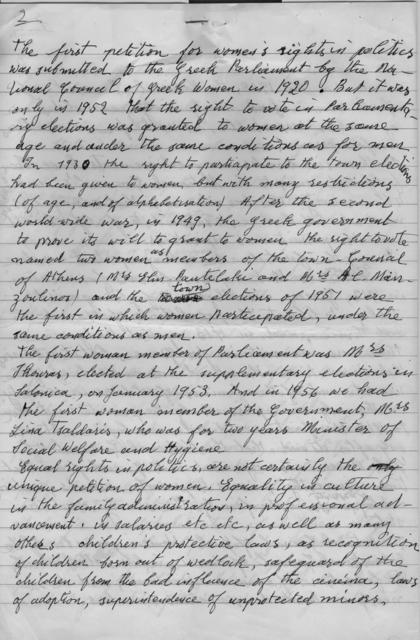 2
The first petition for women's rights in politics
was submitted to the Greek Parliament by the Na-
tional Council of Greek Women in 1920. But it was
only in 1952 that the right to vote in Parliament-
ary elections was granted to women at the same
age and under the same conditions as for men
In 1930 the right to participate to the town elections
had been given to women, but with many restrictions
(of age, and of alphabetisation) After the second
world wide war, in 1949, the Greek government
to prove its will to grant to women the right to vote
named two women as members of the town-Counsial
of Athens (Mrs and Mrs
) and the town elections of 1951 were
the first in which women participated, under the
same conditions as men.
The first woman member of Parliament was Mrs
, elected at the supplementary elections in
Salonica, on January 1953. And in 1956 we had
the first woman member of the Government, Mrs
Lina Tsaldaris, who was for two years Minister of
Social Welfare and Hygiene
Equal rights in politics, are not certainly the only
unique petition of women. Equality in culture
in the family administration, in professional ad-
vancement, in salaries etc etc, as well as many
others children's protective laws, as recognition
of children born out of wedlock, safeguard of the
children from the bad influence of the cinema, laws
of adoption, superintendence of unprotected minors.